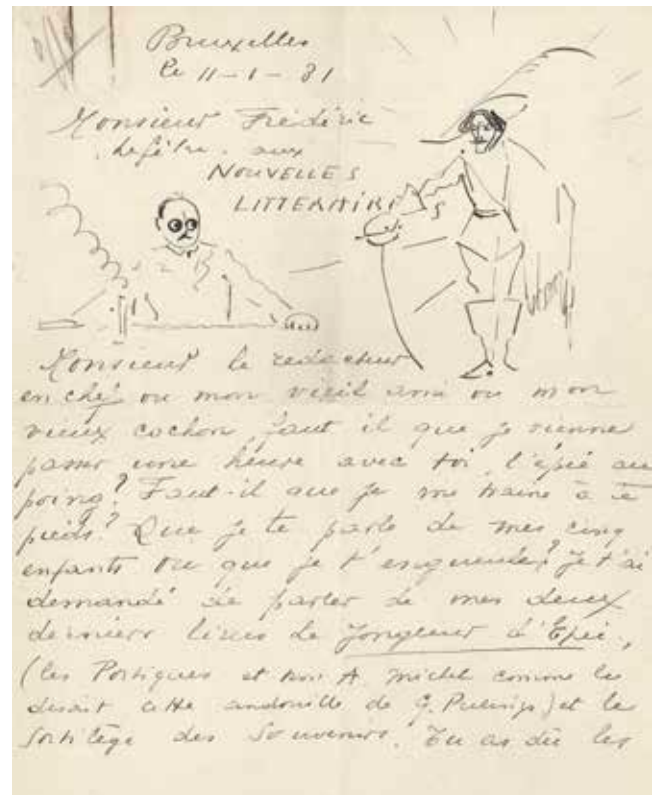 Bruxelles
le 11-1-31
Monsieur Frédéric
Lefèvre. aux
NOUVELLES
LITTERAIRES
Monsieur le redacteur
en chef ou mon vieil ami ou mon
vieux cochon faut il que je vienne
passer une heure avec toi l'épée au
poing? Faut-il que je me traine à te
pieds? Que je te parle de mes cinq
enfants ou que je t'engueule? Je t'ai
demandé de parler de mes deux
derniers livres le Jongleur d'Epée,
(les Portiques et non A. Michel comme le
disait cette andouille de G. Pulings) et le
Sortilège des Souvenirs. Tu as dû les